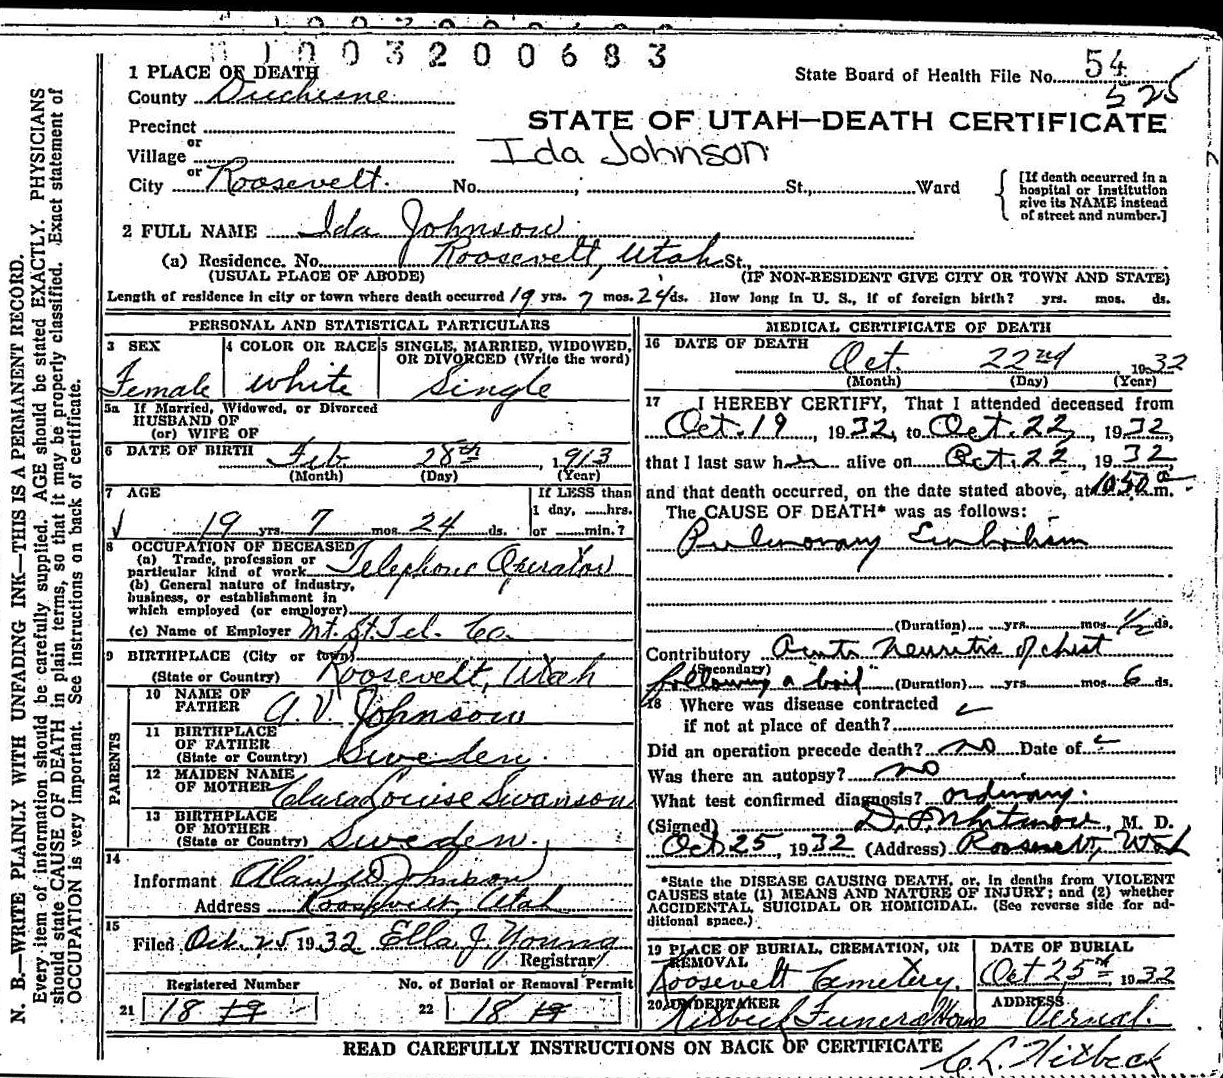 01003200683
State Board of Health File No. 54
525
1 PLACE OF DEATH
County Duchesne
STATE OF UTAH—DEATH CERTIFICATE
Precinct
or
Village
Ida Johnson
or
City Roosevelt. No. ; St., Ward
[If death occurred in a hospital or institution give its NAME instead of street and number.]
2 FULL NAME Ida Johnson
(a) Residence. No. Roosevelt, Utah St.,
(USUAL PLACE OF ABODE) (IF NON-RESIDENT GIVE CITY OR TOWN AND STATE)
Length of residence in city or town where death occurred 19 yrs. 7 mos. 24 ds. How long in U. S., if of foreign birth? yrs. mos. ds.
PERSONAL AND STATISTICAL PARTICULARS
3 SEX
Female
4 COLOR OR RACE
White
5 SINGLE, MARRIED, WIDOWED, OR DIVORCED (Write the word)
Single
5a If Married, Widowed, or Divorced
HUSBAND OF
(or) WIFE OF
6 DATE OF BIRTH Feb 28th, 1913
(Month) (Day) (Year)
7 AGE
19 yrs. 7 mos. 24 ds.
If LESS than
1 day, hrs.
or min.?
8 OCCUPATION OF DECEASED
(a) Trade, profession or
particular kind of work Telephone Operator
(b) General nature of industry,
business, or establishment in
which employed (or employer)
(c) Name of Employer Mt. St. Tel. Co.
9 BIRTHPLACE (City or town)
(State or Country) Roosevelt, Utah
PARENTS
10 NAME OF
FATHER A. V. Johnson
11 BIRTHPLACE
OF FATHER
(State or Country) Sweden.
12 MAIDEN NAME
OF MOTHER Clara Louise Swanson
13 BIRTHPLACE
OF MOTHER
(State or Country) Sweden.
14
Informant Johnson
Address Roosevelt, Utah
15
Filed Oct. 25 1932 Ella J Young
Registrar
Registered Number
21 18 19
No. of Burial or Removal Permit
22 18 19
MEDICAL CERTIFICATE OF DEATH
16 DATE OF DEATH
Oct. 22nd 1932
(Month) (Day) (Year)
17 I HEREBY CERTIFY, That I attended deceased from
Oct. 19, 1932, to Oct. 22, 1932,
that I last saw her alive on Oct. 22, 1932
and that death occurred, on the date stated above, at 10:50 a.m.
The CAUSE OF DEATH* was as follows:
Pulmonary Embolism
(Duration) yrs. mos. 1/2 ds.
Contributory Acute Neuritis of chest
(Secondary)
following a "boil" (Duration) yrs. mos. 6 ds.
18 Where was disease contracted
if not at place of death?
Did an operation precede death? no Date of
Was there an autopsy? no
What test confirmed diagnosis? ordinary.
(Signed) D. P. Whitmore, M. D.
Oct 25, 1932 (Address) Roosevelt, Utah
*State the DISEASE CAUSING DEATH, or, in deaths from VIOLENT
CAUSES state (1) MEANS AND NATURE OF INJURY; and (2) whether
ACCIDENTAL, SUICIDAL OR HOMICIDAL. (See reverse side for ad-
ditional space.)
19 PLACE OF BURIAL, CREMATION, OR
REMOVAL
Roosevelt Cemetery.
DATE OF BURIAL
Oct 25th, 1932
20 UNDERTAKER
Hitbeck Funeral Home
ADDRESS
Vernal.
READ CAREFULLY INSTRUCTIONS ON BACK OF CERTIFICATE
C. L. Hitbeck
N. B.—WRITE PLAINLY WITH UNFADING INK—THIS IS A PERMANENT RECORD.
Every item of information should be carefully supplied. AGE should be stated EXACTLY. PHYSICIANS
should state CAUSE OF DEATH in plain terms, so that it may be properly classified. Exact statement of
OCCUPATION is very important. See instructions on back of certificate.